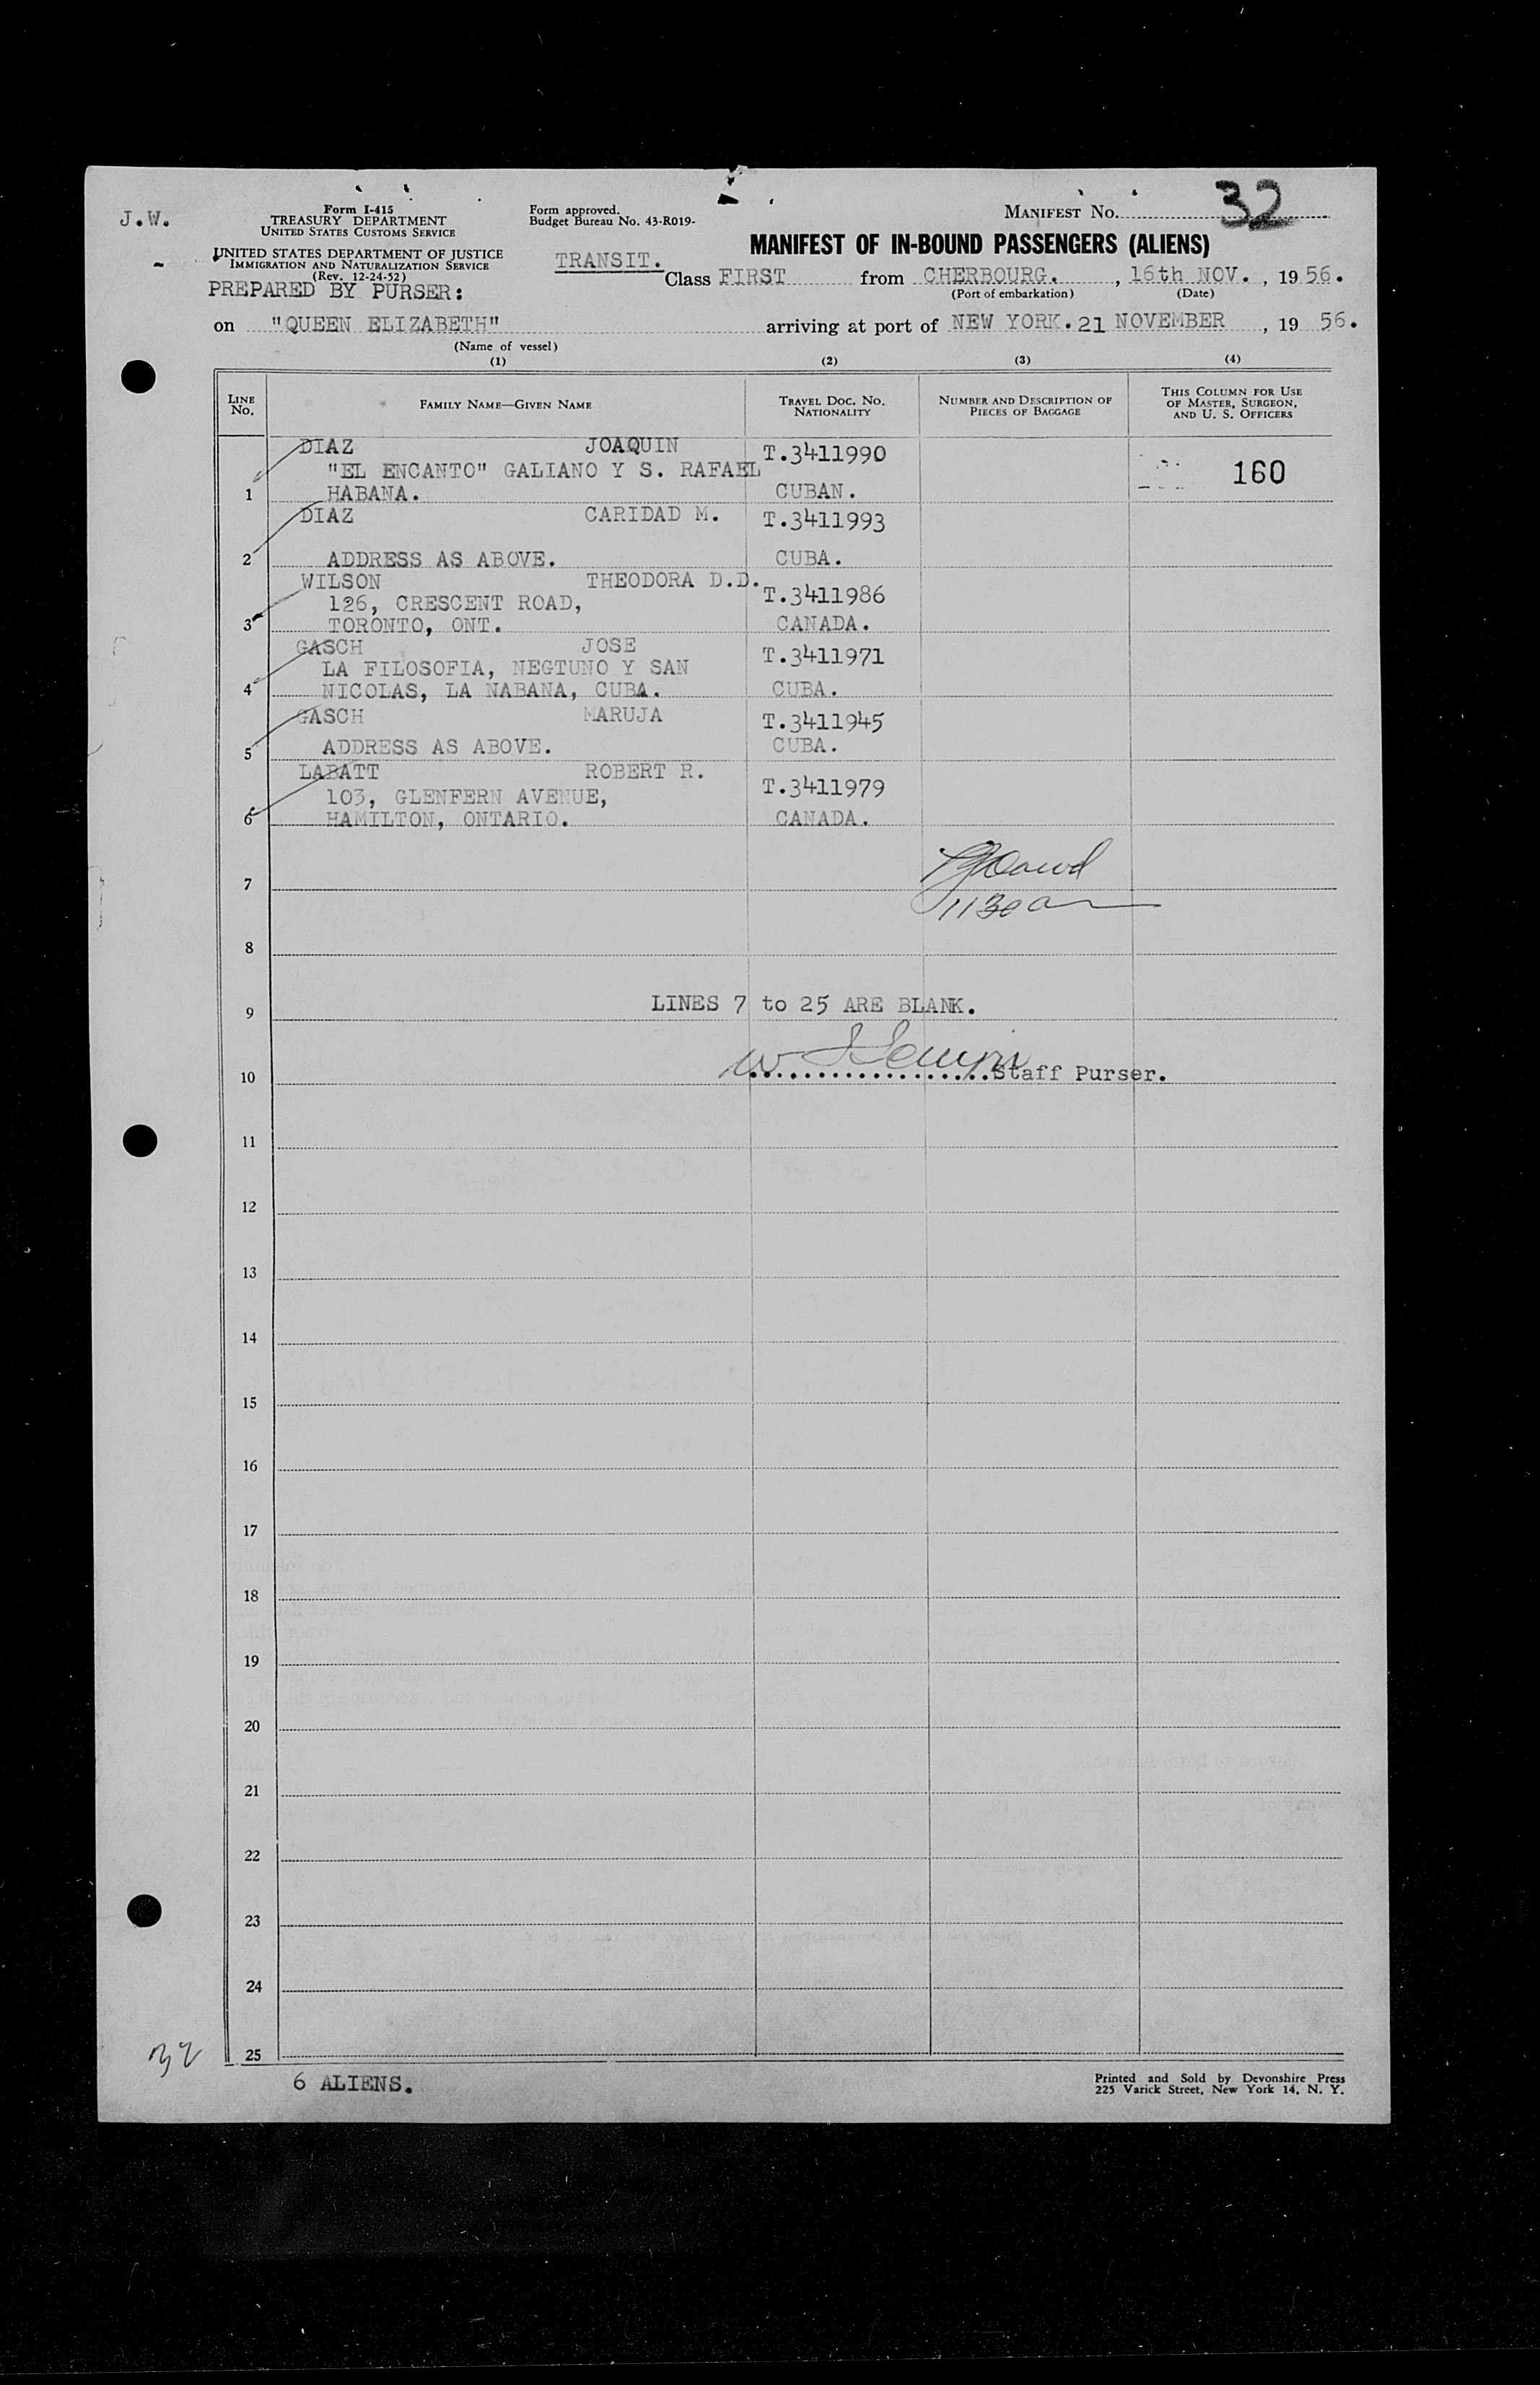 J.W.
Form I-415
TREASURY DEPARTMENT
UNITED STATES CUSTOMS SERVICE
UNITED STATES DEPARTMENT OF JUSTICE
IMMIGRATION AND NATURALIZATION SERVICE
(Rev. 12-24-52)
PREPARED BY PURSER:
Form approved.
Budget Bureau No. 43-R019-
MANIFEST NO. 32
MANIFEST OF IN-BOUND PASSENGERS (ALIENS)
TRANSIT.
Class FIRST from CHERBOURG. , 16th NOV. , 19 56.
(Port of embarkation) (Date)
on "QUEEN ELIZABETH" arriving at port of NEW YORK. 21 NOVEMBER , 19 56.
(Name of vessel)
(1) (2) (3) (4)
LINE NO.
FAMILY NAME—GIVEN NAME
TRAVEL DOC. NO. NATIONALITY
NUMBER AND DESCRIPTION OF PIECES OF BAGGAGE
THIS COLUMN FOR USE OF MASTER, SURGEON, AND U. S. OFFICERS
DIAZ JOAQUIN T.3411990
"EL ENCANTO" GALIANO Y S. RAFAEL 160
1 HABANA. CUBAN.
DIAZ CARIDAD M. T.3411993
2 ADDRESS AS ABOVE. CUBA.
WILSON THEODORA D.D.
126, CRESCENT ROAD, T.3411986
3 TORONTO, ONT. CANADA.
GASCH JOSE T.3411971
LA FILOSOFIA, NEGTUNO Y SAN
4 NICOLAS, LA NABANA, CUBA. CUBA.
GASCH MARUJA T.3411945
5 ADDRESS AS ABOVE. CUBA.
LABATT ROBERT R.
103, GLENFERN AVENUE, T.3411979
6 HAMILTON, ONTARIO. CANADA.
7
1130 a
8
LINES 7 to 25 ARE BLANK.
9
10 Staff Purser.
11
12
13
14
15
16
17
18
19
20
21
22
23
24
25
32
6 ALIENS.
Printed and Sold by Devonshire Press
225 Varick Street, New York 14, N. Y.